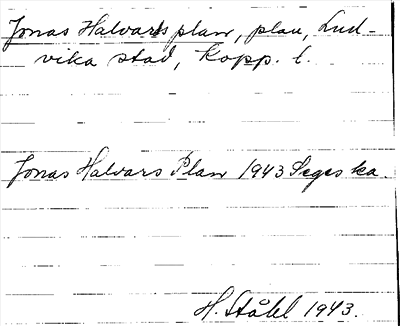 Jonas Halvarts plan, plan, Lud-
vika stad, Kopp. l.
Jonas Halvars Plan 1943 Seges ka.
H. Ståhl 1943.